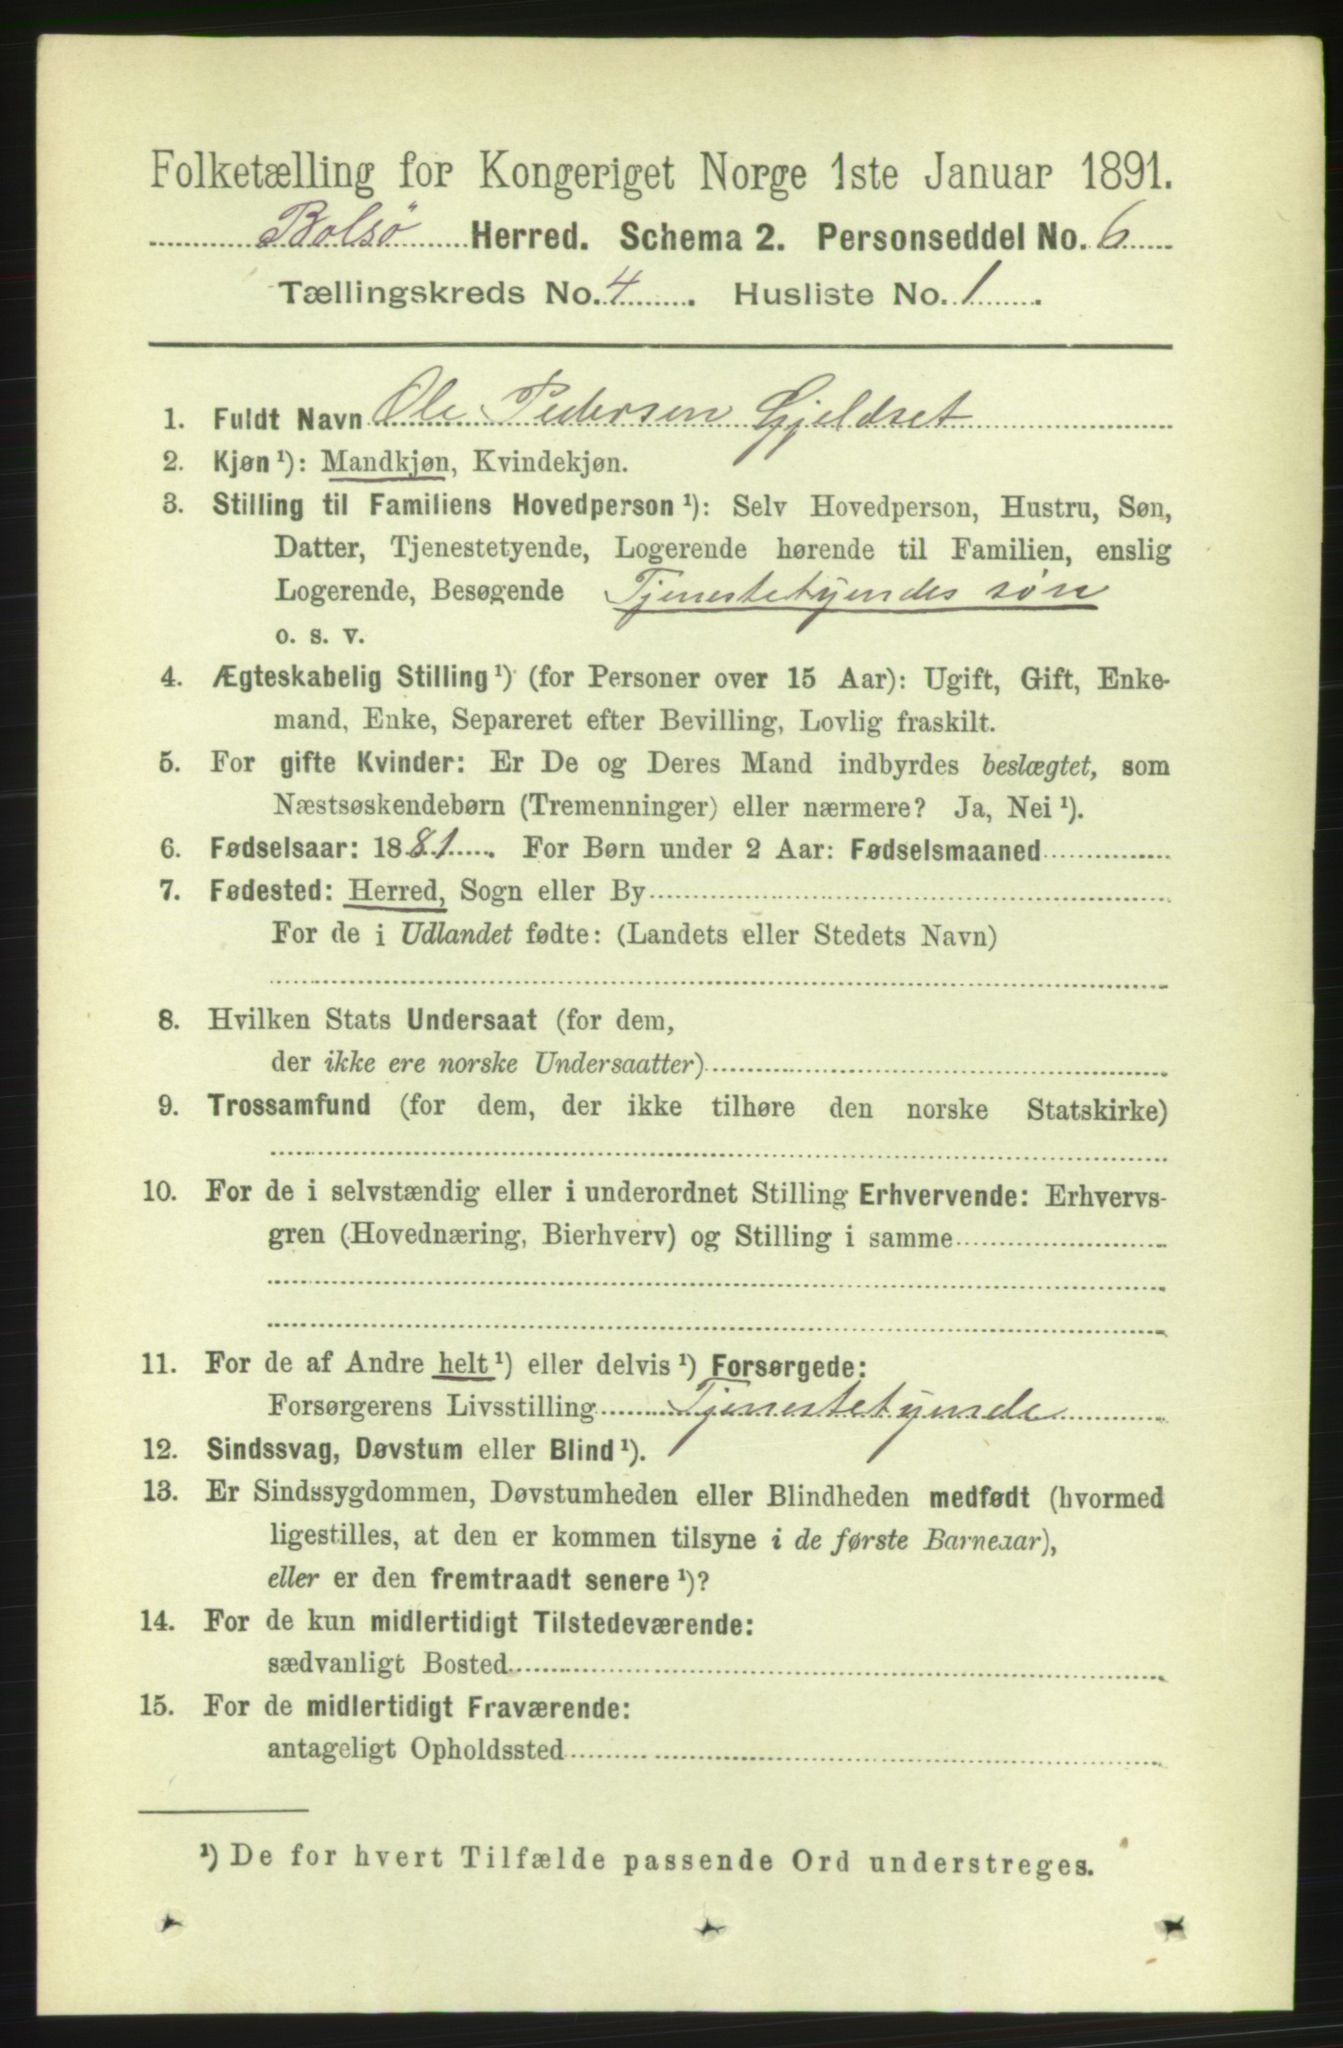 Folketælling for Kongeriget Norge 1ste Januar 1891.
Bolsö Herred. Schema 2. Personseddel No. 6
Tællingskreds No. 4. Husliste No. 1.
1. Fuldt Navn Ole Pedersen Gjeldset
2. Kjøn ¹): Mandkjøn, Kvindekjøn.
3. Stilling til Familiens Hovedperson ¹): Selv Hovedperson, Hustru, Søn,
Datter, Tjenestetyende, Logerende hørende til Familien, enslig
Logerende, Besøgende Tjenestetyendes søn
o. s. v.
4. Ægteskabelig Stilling ¹) (for Personer over 15 Aar): Ugift, Gift, Enke-
mand, Enke, Separeret efter Bevilling, Lovlig fraskilt.
5. For gifte Kvinder: Er De og Deres Mand indbyrdes beslægtet, som
Næstsøskendebørn (Tremenninger) eller nærmere? Ja, Nei ¹).
6. Fødselsaar: 1881. For Børn under 2 Aar: Fødselsmaaned
7. Fødested: Herred, Sogn eller By
For de i Udlandet fødte: (Landets eller Stedets Navn)
8. Hvilken Stats Undersaat (for dem,
der ikke ere norske Undersaatter)
9. Trossamfund (for dem, der ikke tilhøre den norske Statskirke)
10. For de i selvstændig eller i underordnet Stilling Erhvervende: Erhvervs-
gren (Hovednæring, Bierhverv) og Stilling i samme
11. For de af Andre helt ¹) eller delvis ¹) Forsørgede:
Forsørgerens Livsstilling Tjenestetyende
12. Sindssvag, Døvstum eller Blind ¹).
13. Er Sindssygdommen, Døvstumheden eller Blindheden medfødt (hvormed
ligestilles, at den er kommen tilsyne i de første Barneaar),
eller er den fremtraadt senere ¹)?
14. For de kun midlertidigt Tilstedeværende:
sædvanligt Bosted
15. For de midlertidigt Fraværende:
antageligt Opholdssted
¹) De for hvert Tilfælde passende Ord understreges.